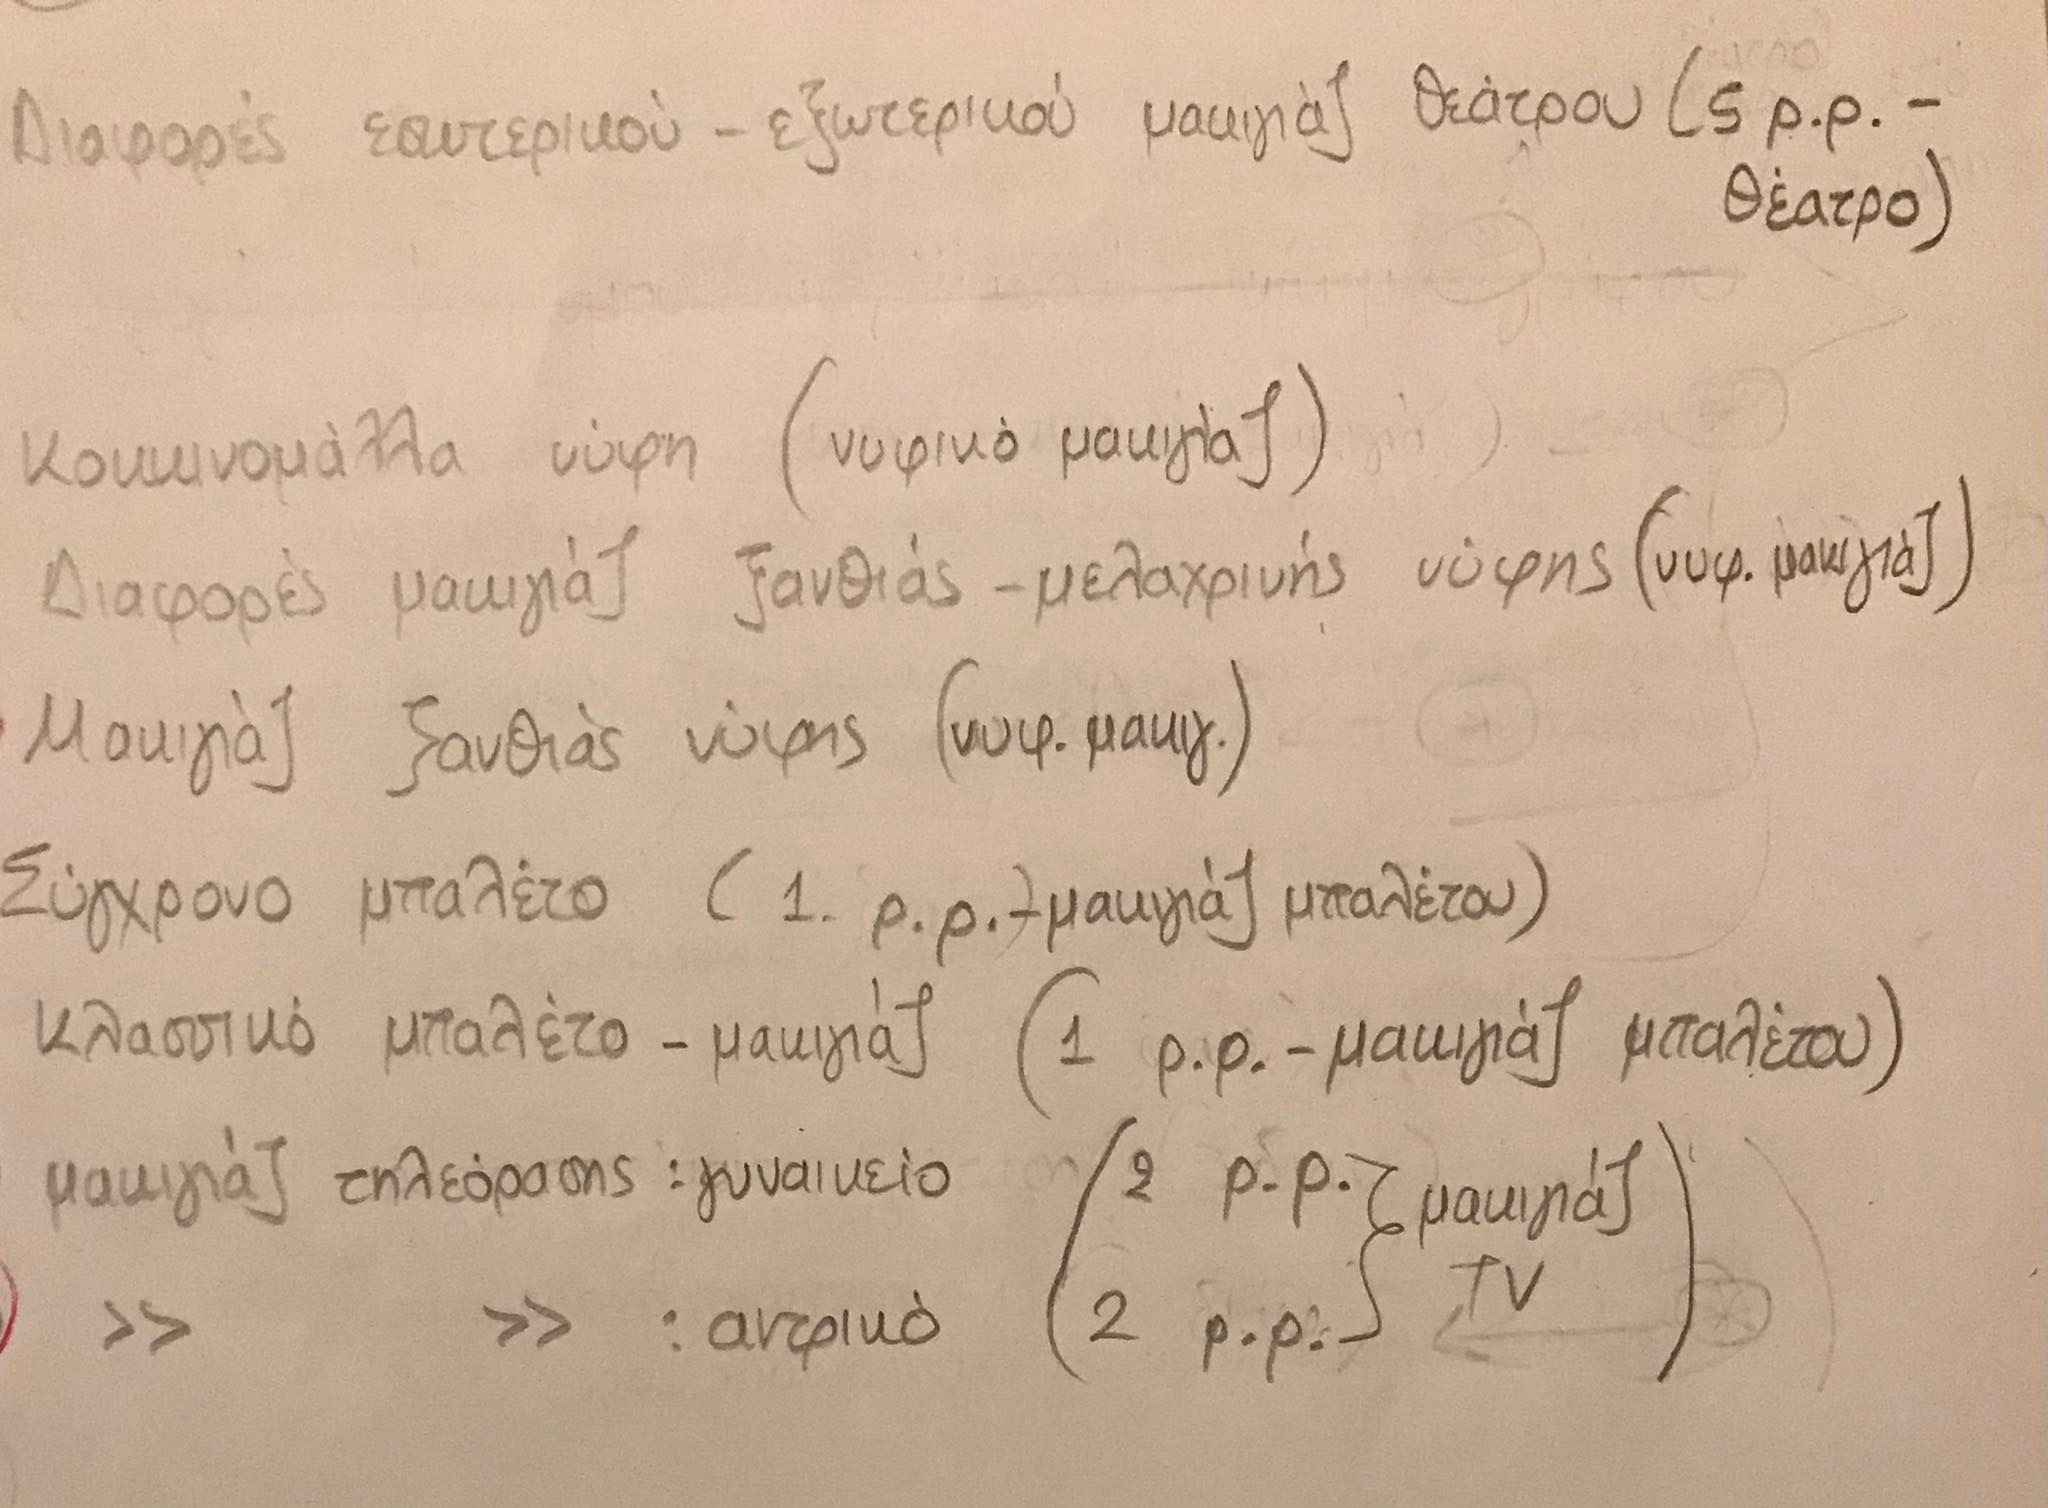 Διαφορές εσωτερικού - εξωτερικού μακιγιάζ θεάτρου (5 p.p. -
θέατρο)
Κοκκινομάλλα νύφη (νυφικό μακιγιάζ)
Διαφορές μακιγιάζ ξανθιάς - μελαχρινής νύφης (νυφ. μακιγιάζ)
Μακιγιάζ ξανθιάς νύφης (νυφ. μακιγ.)
Σύγχρονο μπαλέτο (1. p.p. - μακιγιάζ μπαλέτου)
Κλασσικό μπαλέτο - μακιγιάζ (1 p.p. - μακιγιάζ μπαλέτου)
μακιγιάζ τηλεόρασης : γυναικείο (2 p.p. μακιγιάζ
>> >> : αντρικό 2 p.p. TV)